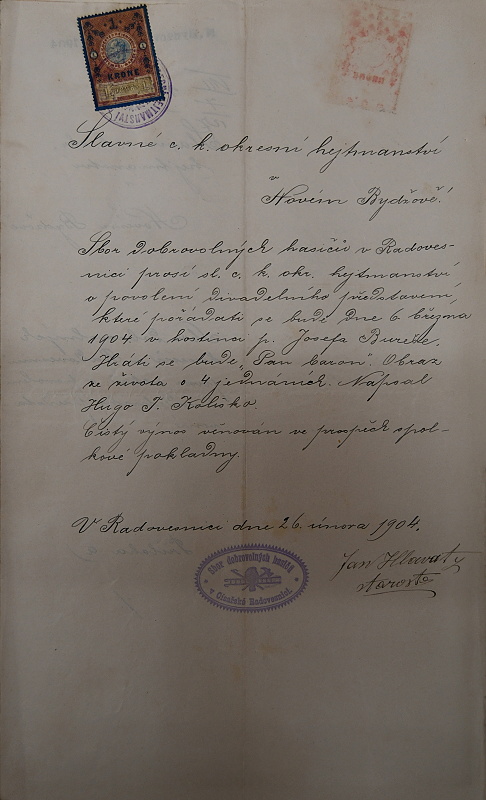 1
KRONE
HEJTMANSTVÍ
Slavné c. k. okresní hejtmanství
v
Novém Bydžově!
Sbor dobrovolných hasičů v Radoves-
nici prosí sl. c. k. okr. hejtmanství
o povolení divadelního představení,
které pořádati se bude dne 6. března
1904 v hostinci p. Josefa Bureše.
Hráti se bude „Pan Caron". Obraz
ze života o 4 jednáních. Napsal
Hugo T. Koliško.
Čistý výnos věnován ve prospěch spol-
kové pokladny.
V Radovesnici dne 26. února 1904.
Jan Hlavatý
starosta
Sbor dobrovolných hasičů
v Radovesnici.